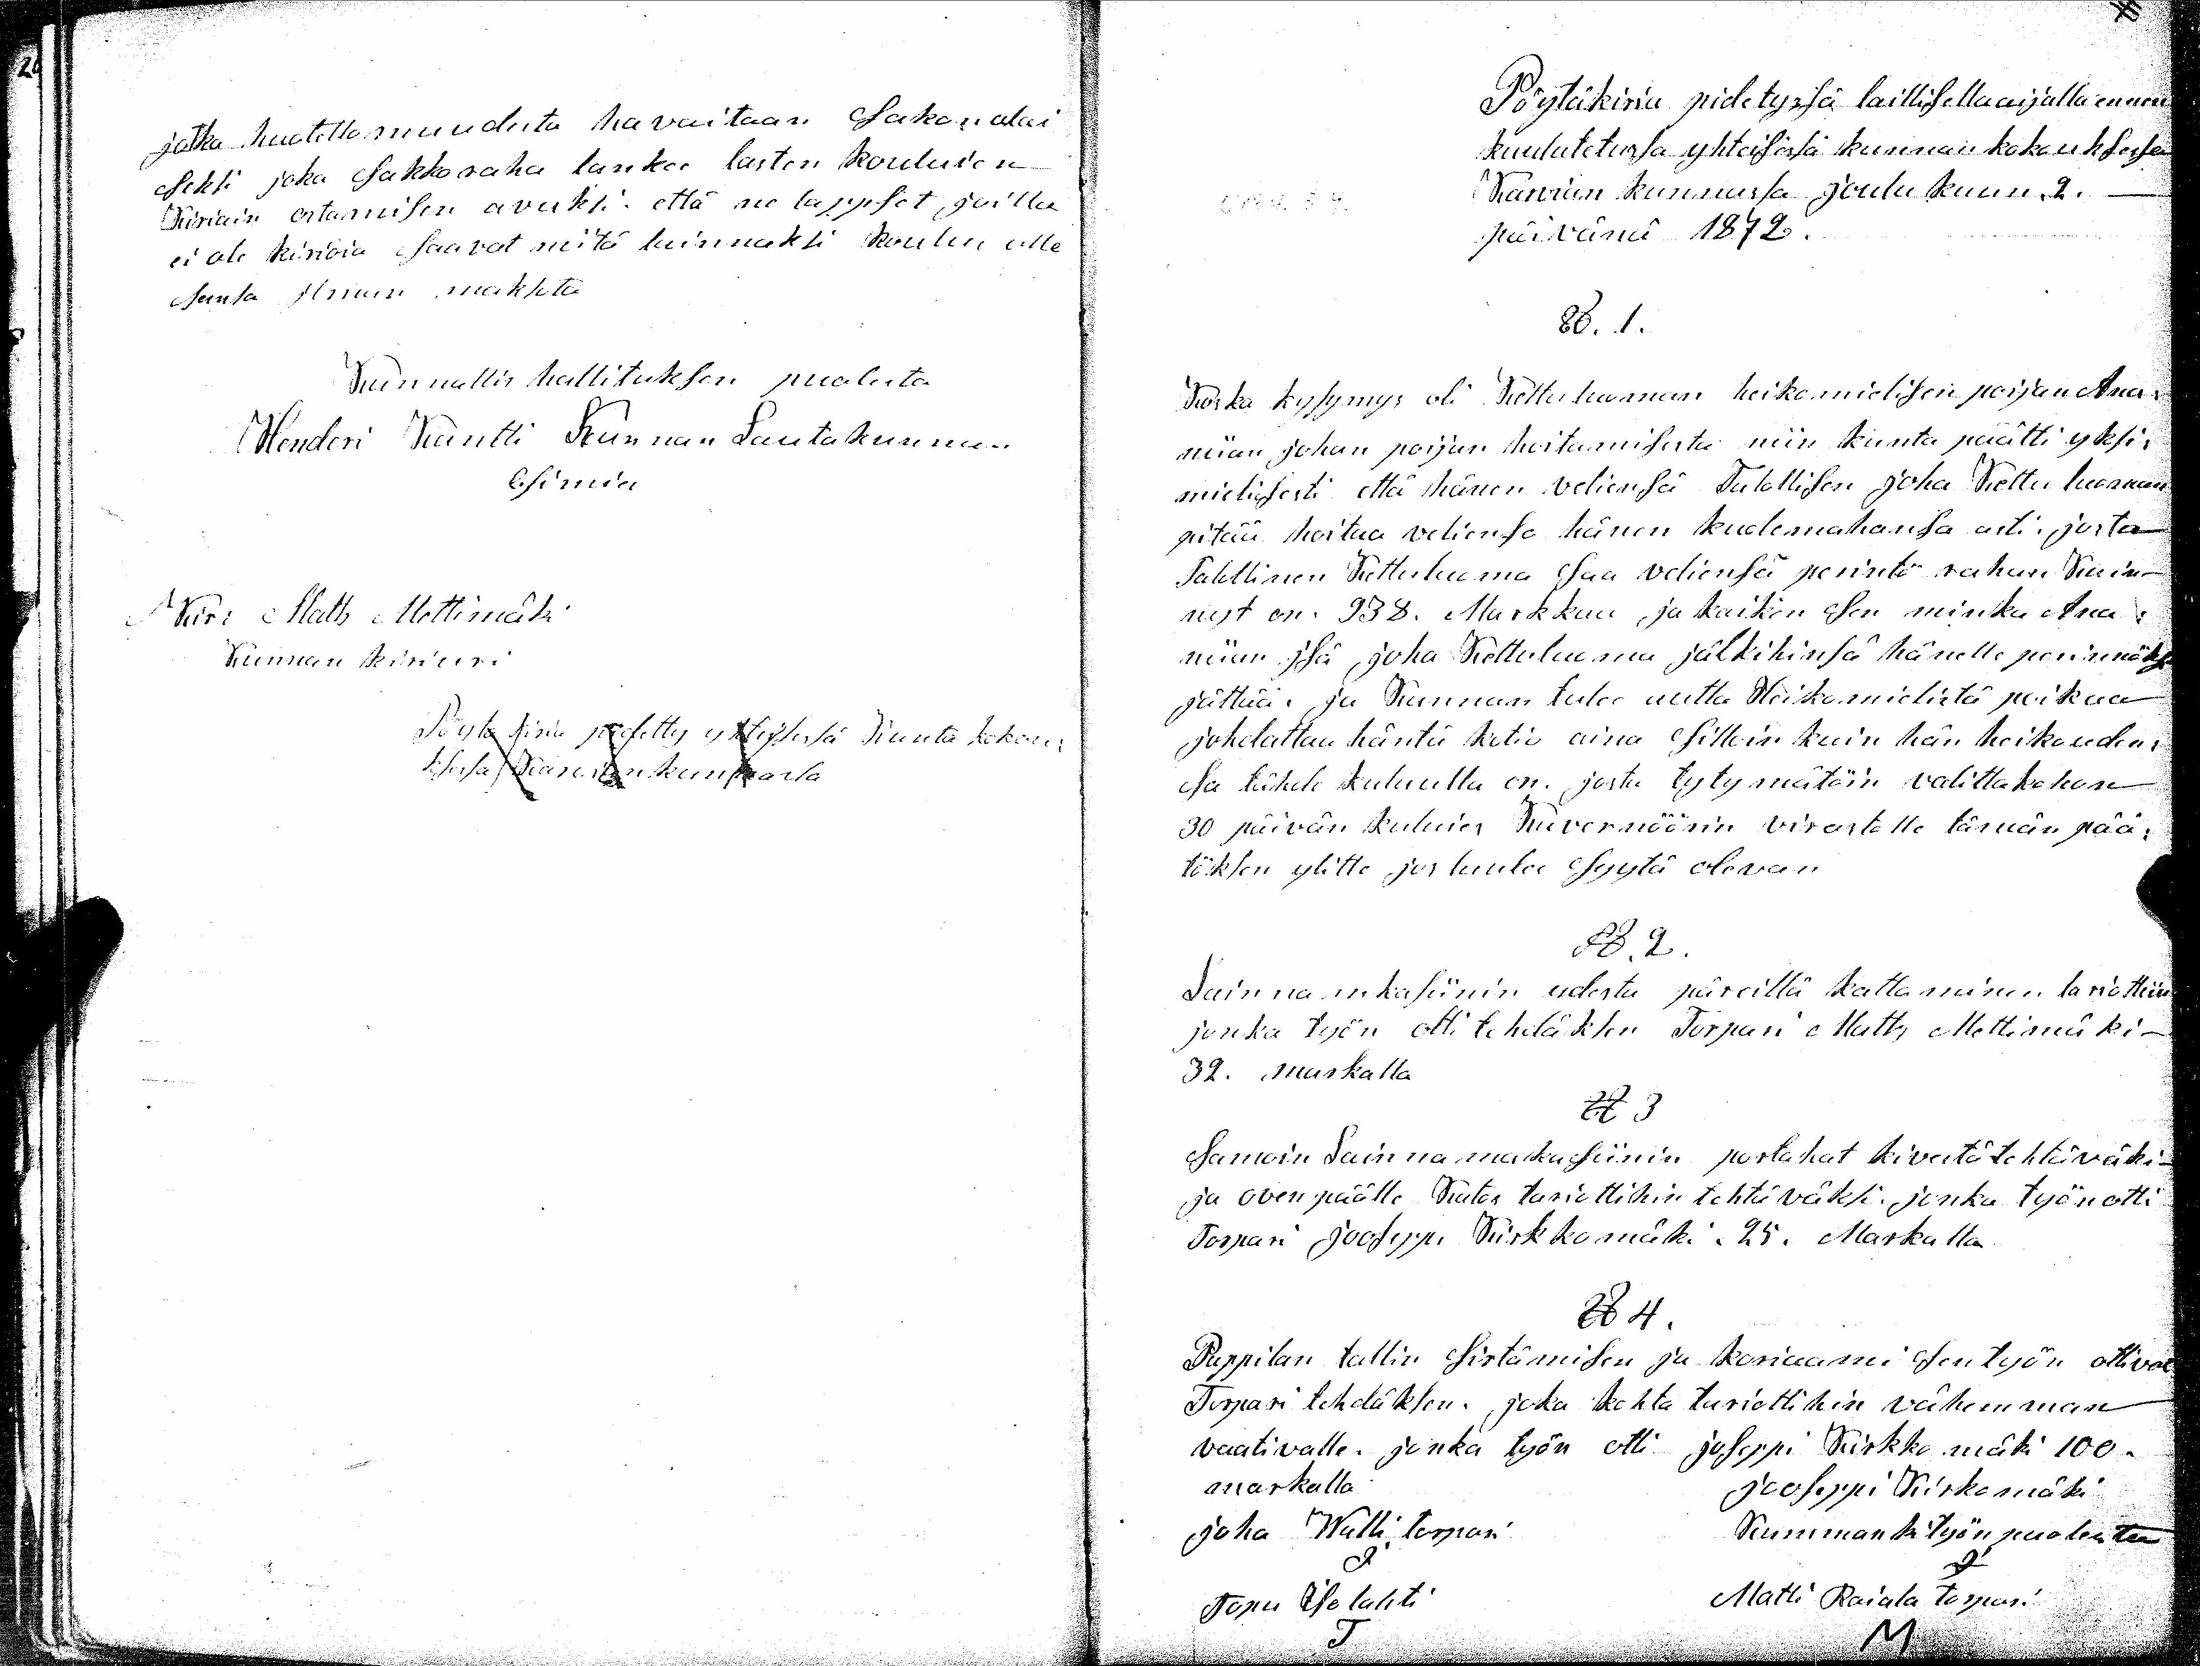 26
jotka huolettomuudesta havaitaan Sakon alai
Seksi joka Sakkoraha lankee lasten kouluien
Kiriain ostamisen avuksi. että ne lappset joilla
ei ole kirioia Saavat niitä lainnaksi koulua olle
Sansa ilman maksota
Kunnallis hallituksen puolesta
Henderi Käntti Kunnan Lautakunnan
Esimies
Kirj Matts Mettimäki
Kunnan kiriuri
Pöytä kiria pidetty yhteisessä Kunta kokou:
ksessa Karvian kunnassa
Pöytäkiria pidetyssä laillisella aijalla ennen
kuulutetussa yhteisessä kunnan kokouksessa
Karvian kunnassa joulukuun. 2.
päivänä 1872.
§. 1.
Koska kysymys oli Kettuluoman heikomielisen poijan Ana:
niian johan poijan hoitamisesta niin kunta päätti yksi:
mielisesti että hänen veliensä Talollisen Joha Kettuluoman
pitää hoitaa veliensä hänen kuolemahansa asti. josta
Talollinen Kettuluoma Saa veliensä perintö rahan Kuin
nyt on. 938. Markkaa, ja kaiken Sen minkä Ana:
niian isä joha Kettuluoma jälkihinsä hänelle perinnöksi
jättää. ja Kunnan tulee autta Heikomielistä poikaa
johdattaa häntä kotio aina Silloin kuin hän heikouden:
Sa tähde kuluulla on. josta tytymätöin valittakohon
30 päivän kuluies Kuvernöörin virastolle tämän pää:
töksen ylitte jos luulee Syytä olevan
§. 2.
Lainnamkasiinin udesta päreillä kattaminen tariottiin
jonka työn otti tehdäksen Torpari Matts Mettimäki
32. markalla
§ 3
Samoin Lainna makasiinin portahat kivestä tehtäväksi
ja oven päälle Katos tariottihin tehtäväksi. jonka työn otti
Torpari Jooseppi Kirkkomäki. 25. Markalla
§ 4.
Pappilan tallin Siirtämisen ja koriaami Sen työn ottivat
Torpari tehdäksen. joka kohta tariottihin vähemman
vaativalle. jonka työn otti joseppi Kirkko mäki 100.
markalla
Jooseppi Kirkomäki
joha Wälli torpari
Kummanki työn puolesta
Topu Isolahti
Matti Raiala torpari
T
M